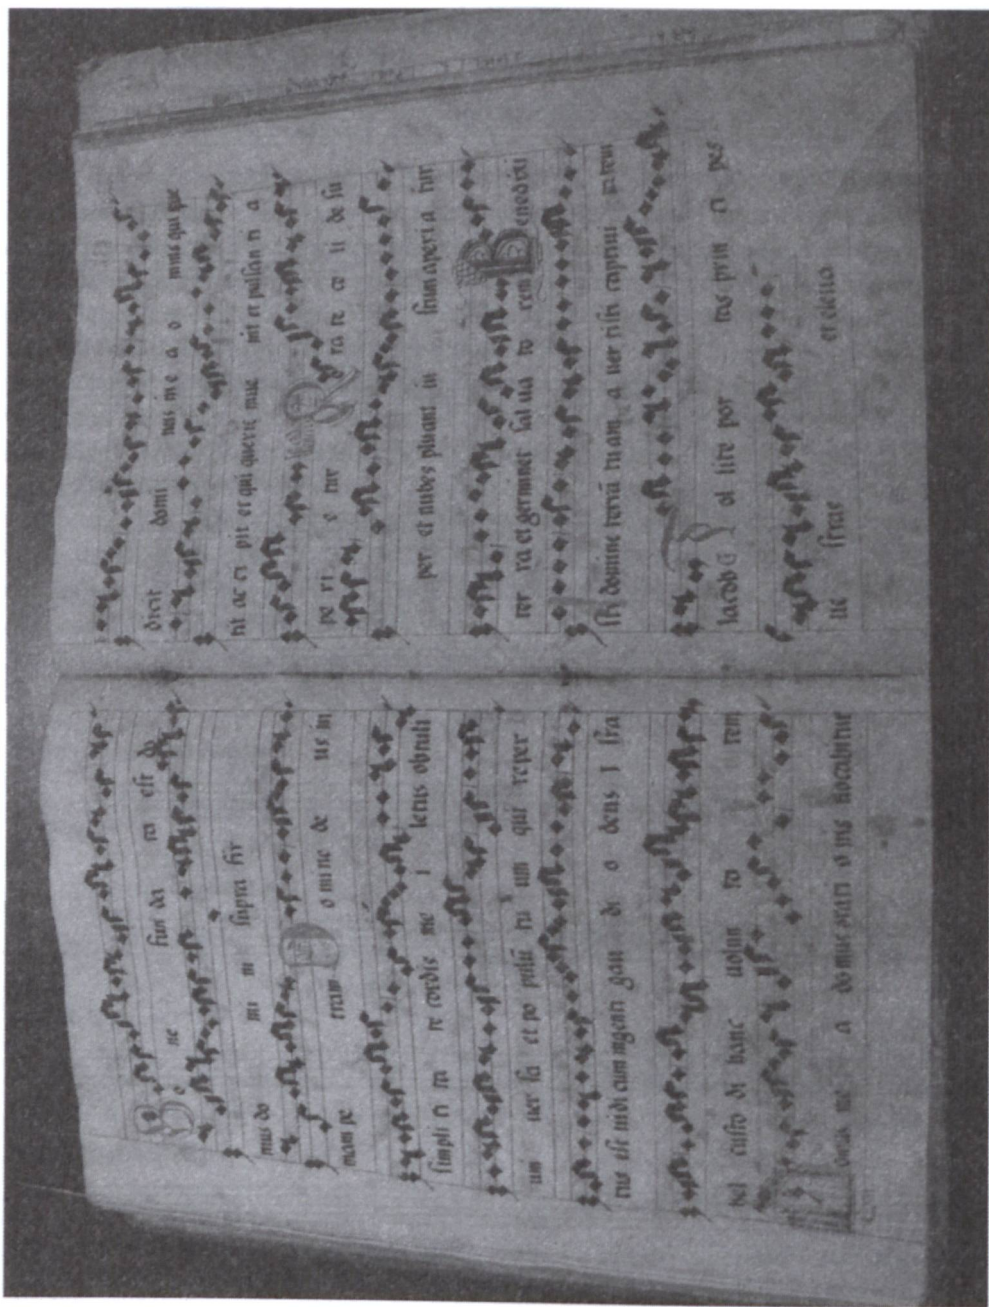 B e ne fun da ta est do
mus do mi ni supra fir
mam pe tram D omi ne de us in
simpli ci ta te cordis me i letus obtuli
uni uer sa et po pulū tu um qui reper
tus est uidi cum ingenti gau di o deus I sra
hel custo di hanc uolun ta tem
me a domus orati o nis uocabitur
dicit domi nus in e a o mnis qui pe
tit ac ci pit et qui querit inue nit et pulsan ti a
pe ri e tur R ra te ce li de su
per et nubes pluant iu stum aperi a tur
ter ra et germinet sal ua to rem B enedixi
sti domine terrā tuam a uer tisti captiui tatem
Iacob T ol lite por tas prin ci pes
ue stras et eleua